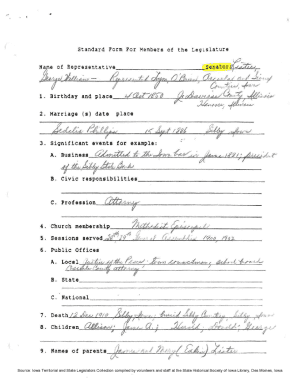 Standard Form For Members of the Legislature
Name of Representative Senator Lister
George William - Represented Lyon, O'Brien, Osceola and Sioux
Counties, Iowa
1. Birthday and place 4 Oct 1850 Jo Daviess County, Illinois
2. Marriage (s) date place
Sedalia Phillips 15 Sept 1886 Sibley, Iowa
3. Significant events for example:
A. Business Admitted to the Iowa bar in June 1881; president
of the Sibley State Bank
B. Civic responsibilities
C. Profession Attorney
4. Church membership Methodist Episcopal
5. Sessions served 28th, 29th General Assemblies 1900, 1902
6. Public Offices
A. Local Justice of the Peace; Town councilman; school board;
Osceola County attorney
B. State
C. National
7. Death 12 Dec 1910 Sibley, Iowa; buried Sibley Cemetery, Sibley, Iowa
8. Children George
9. Names of parents James and Mary Lister
Source: Iowa Territorial and State Legislators Collection compiled by volunteers and staff at the State Historical Society of Iowa Library, Des Moines, Iowa.